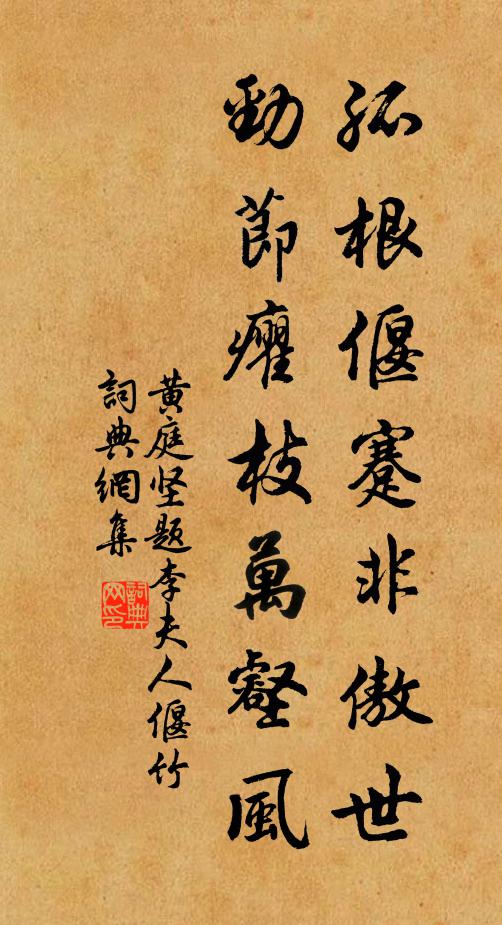 孤根偃蹇非傲世
勁節癯枝萬壑風
黃庭坚题李夫人偃竹
詞典網集
詞典
网印